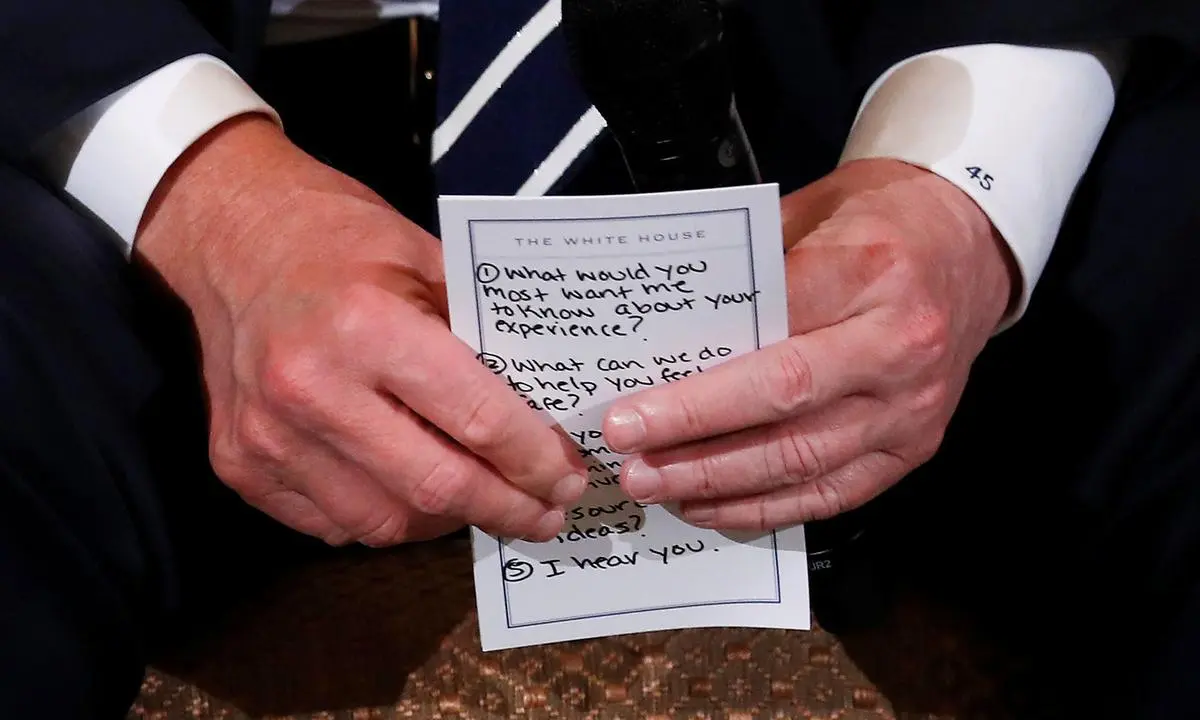 THE WHITE HOUSE
① What would you
most want me
to know about your
experience?
② What can we do
to help you feel
safe?
ideas?
⑤ I hear you.
45
JR2